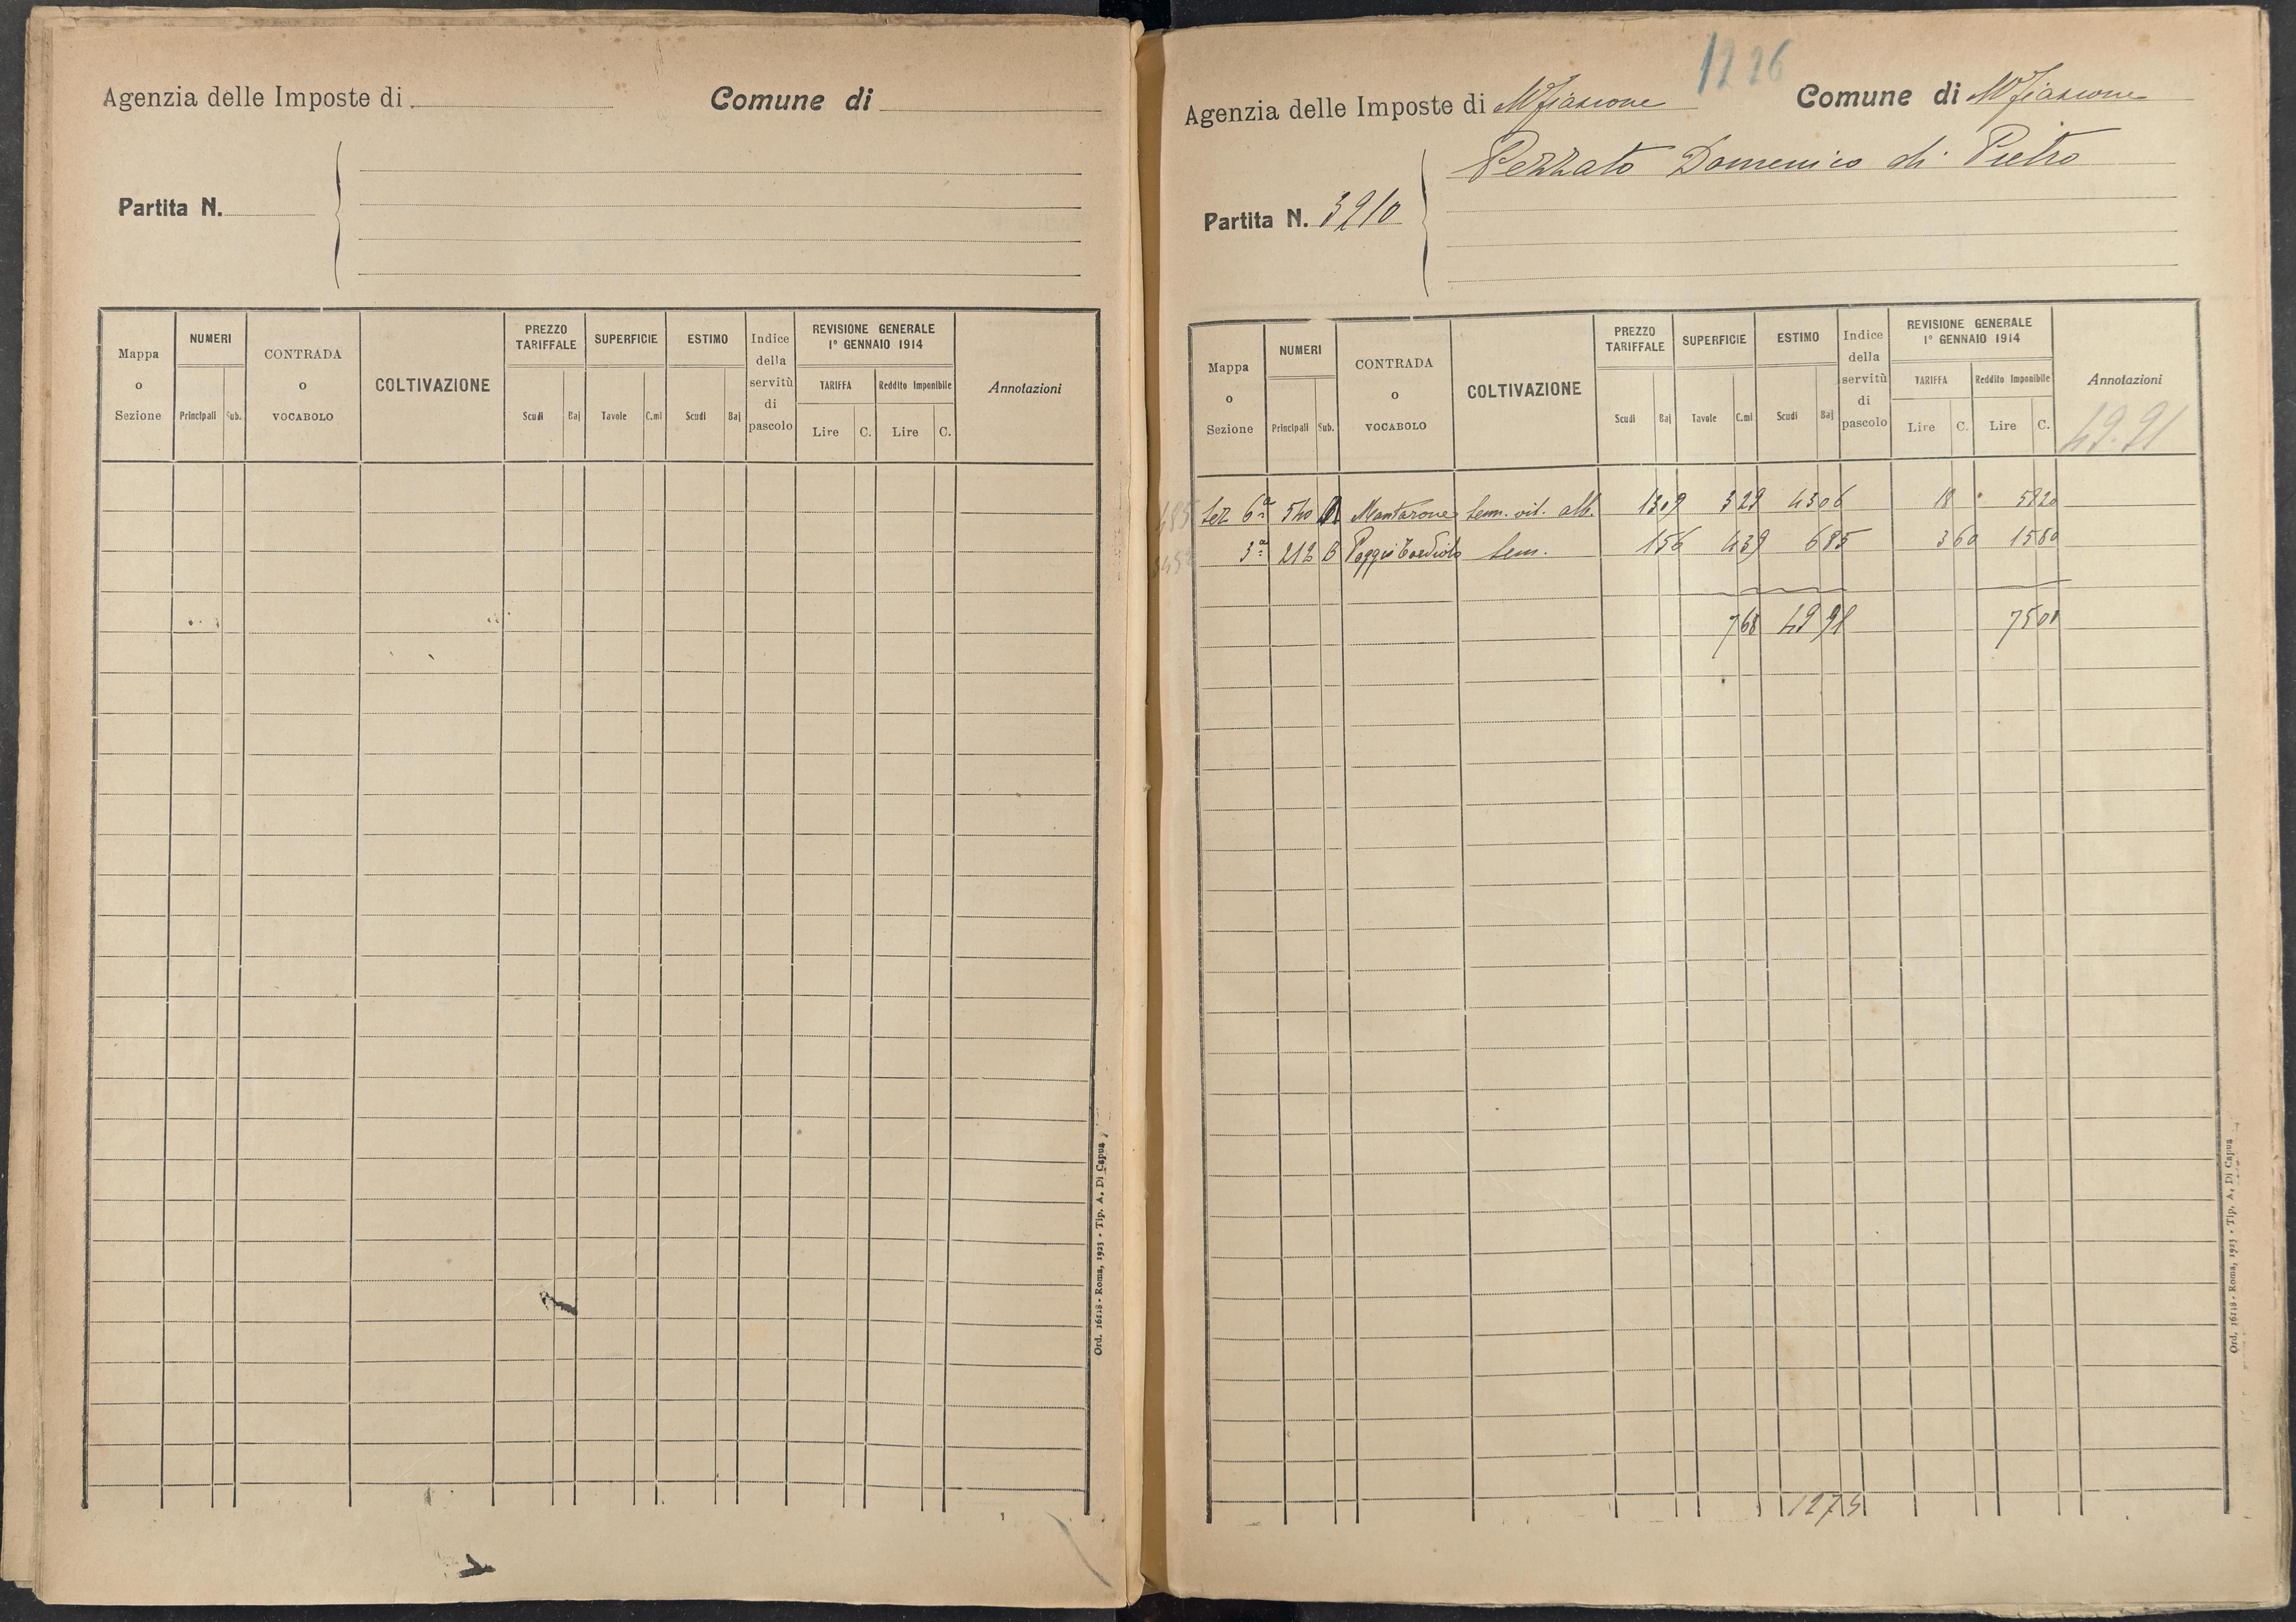 Agenzia delle Imposte di
Comune di
Partita N.
Mappa o Sezione
NUMERI
Principali
Sub.
CONTRADA o VOCABOLO
COLTIVAZIONE
PREZZO TARIFFALE
Scudi
Baj
SUPERFICIE
Tavole
C.mi
ESTIMO
Scudi
Baj
Indice della servitù di pascolo
REVISIONE GENERALE 1° GENNAIO 1914
TARIFFA
Reddito Imponibile
Lire
C.
Lire
C.
Annotazioni
Ord. 16118 - Roma, 1923 - Tip. A. Di Capua
1226
Agenzia delle Imposte di Mfiascone
Comune di Mfiascone
Pezzato Domenico di Pietro
Partita N. 3910
Mappa o Sezione
NUMERI
Principali
Sub.
CONTRADA o VOCABOLO
COLTIVAZIONE
PREZZO TARIFFALE
Scudi
Baj
SUPERFICIE
Tavole
C.mi
ESTIMO
Scudi
Baj
Indice della servitù di pascolo
REVISIONE GENERALE 1° GENNAIO 1914
TARIFFA
Reddito Imponibile
Lire
C.
Lire
C.
Annotazioni
49.91
Sez 6ª 540 Montarone Sem. vit. alb. 13 09 3 29 43 06 18 59 20
3ª 212 B Poggio Sem. 1 56 4 39 6 85 3 60 15 80
7 68 49 91 75 00
1275
Ord. 16118 - Roma, 1923 - Tip. A. Di Capua